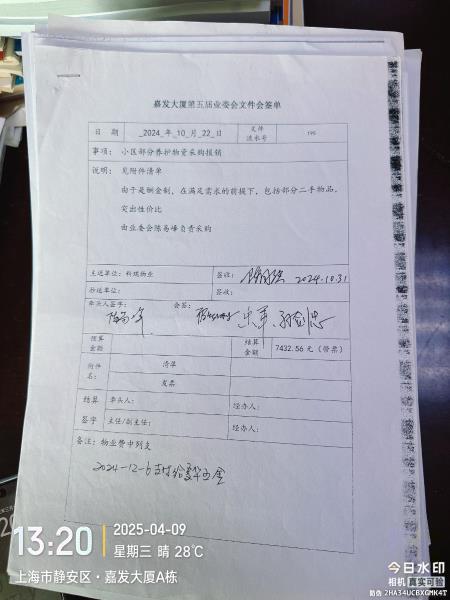 嘉发大厦第五届业委会文件会签单
日 期 2024 年 10 月 22 日 文件流水号 195
事项: 小区部分养护物资采购报销
说明: 见附件清单
由于是酬金制,在满足需求的前提下,包括部分二手物品,
突出性价比
由业委会陈易峰负责采购
主送单位: 科瑞物业 签收: 2024.10.31
抄送单位: 签收:
牵头人签字: 会签:
预算金额 结算金额 7432.56 元(带票)
附件名: 清单
发票
结算签字 牵头人: 经办人:
主任/副主任: 经办人:
备注: 物业费中列支
2024-12-6
13:20
2025-04-09
星期三 晴 28℃
上海市静安区·嘉发大厦A栋
今日水印
相机 真实可验
防伪 2HA34UCBXGMK4T